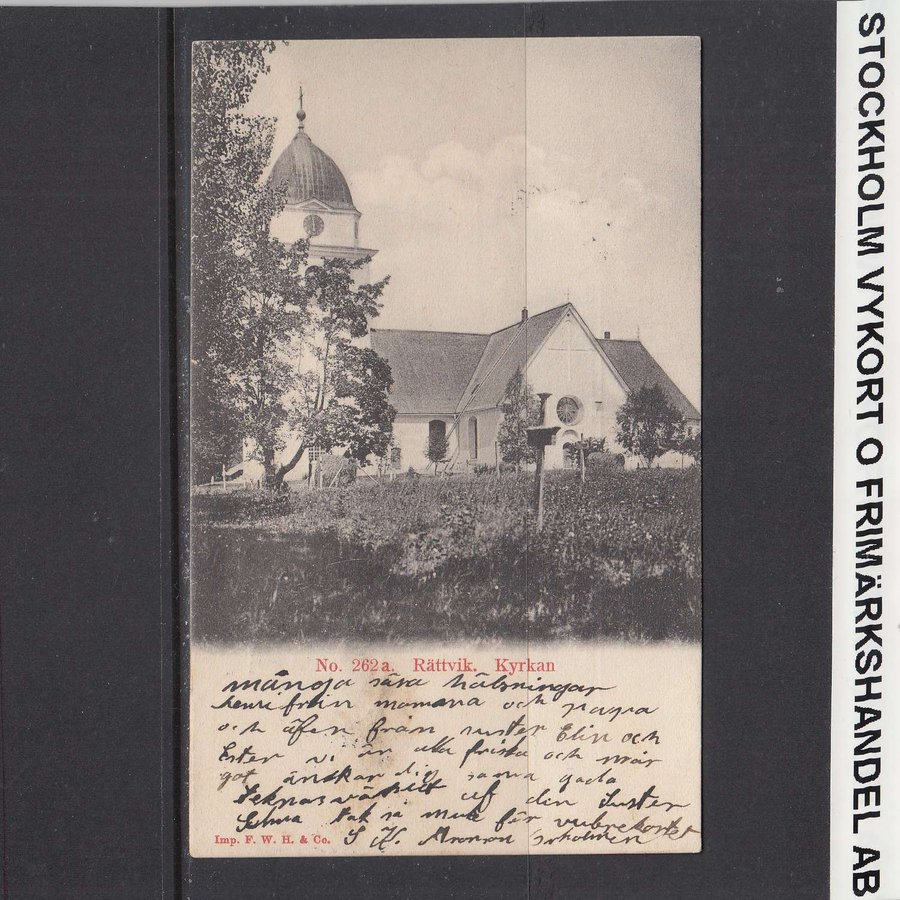 No. 262a. Rättvik. Kyrkan
många kära hälsningar
hemifrån mamma och pappa
och äfen från syster Elin och
Ester vi är alla friska och mår
got önskar dig samma goda
teknas vänligt af din syster
Selma tak så mycke för vubrekortet
S K. Aronson
Imp. F. W. H. & Co.
STOCKHOLM VYKORT O FRIMÄRKSHANDEL AB